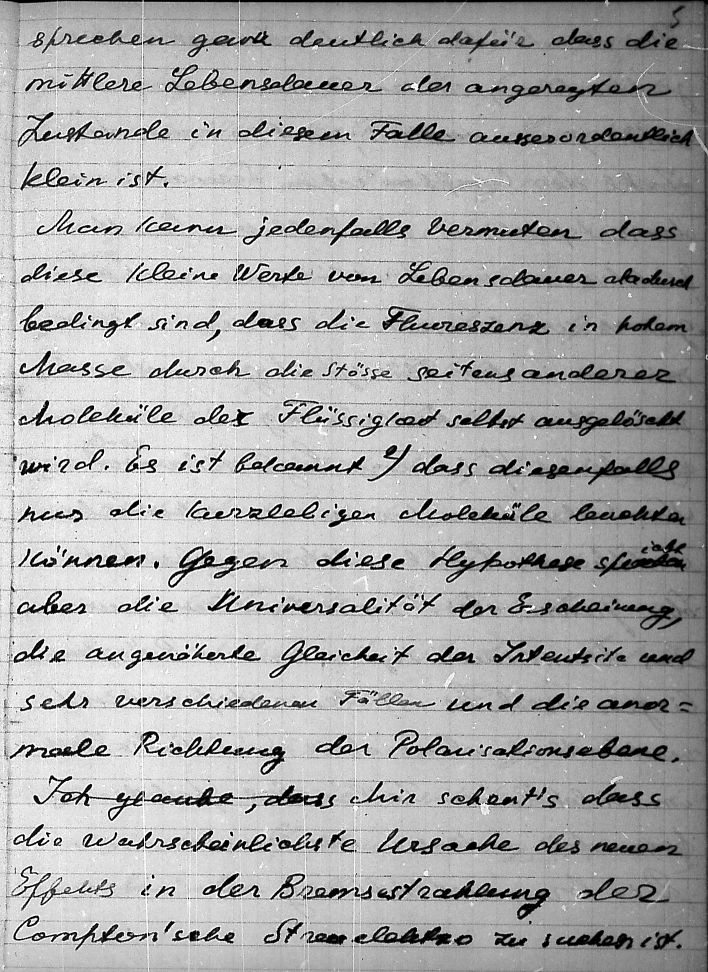 5
sprechen ganz deutlich dafür dass die
mittlere Lebensdauer der angeregten
Zustande in diesem Falle ausserordentlich
klein ist.
Man kann jedenfalls vermuten dass
diese kleine Werte von Lebensdauer dadurch
bedingt sind, dass die Fluoreszenz in hohem
Masse durch die Stösse seitens anderer
Moleküle der Flüssigkeit selbst ausgelöscht
wird. Es ist bekannt 2) dass diesenfalls
nur die kurzlebigen Moleküle leuchten
können. Gegen diese Hypothese spricht
aber die Universalität der Erscheinung,
die angenäherte Gleicheit der Intensite und
sehr verschiedenen Fällen und die anor=
male Richtung der Polarisationsebene.
Ich glaube, dass Mir schent's dass
die wahrscheinlichste Ursache des neuen
Effekts in der Bremsstrahlung der
Compton'sche zu suchen ist.